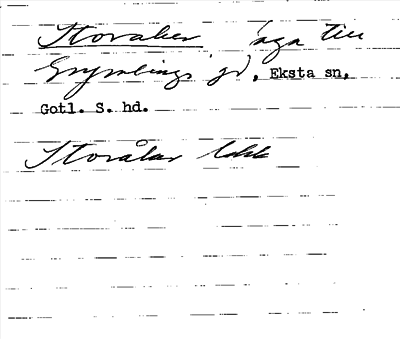 Storaker äga till
Grymlings gd, Eksta sn,
Gotl. S. hd.
Storåkar